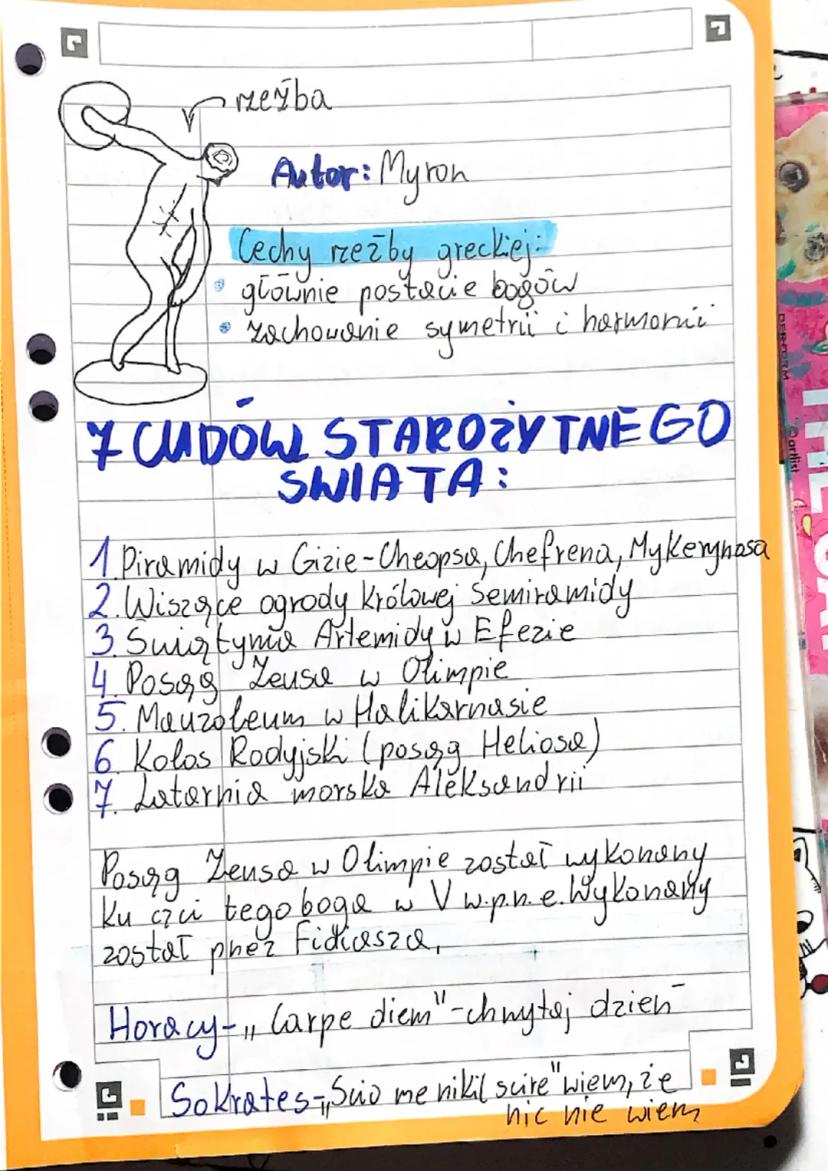 rzeźba
Autor: Myron
Cechy rzeźby greckiej:
• głównie postacie bogów
• zachowanie symetrii i harmonii
7 CUDÓW STAROŻYTNEGO
SWIATA:
1. Piramidy w Gizie-Cheopsa, Chefrena, Mykerynosa
2. Wiszące ogrody Królowej Semiramidy
3. Świątynia Artemidy w Efezie
4. Posąg Zeusa w Olimpie
5. Mauzoleum w Halikarnasie
6. Kolos Rodyjski (posąg Heliosa)
7. Latarnia morska Aleksandrii
Posąg Zeusa w Olimpie został wykonany
ku czci tego boga w V w.p.n.e. Wykonany
został przez Fidiasza,
Horacy-„Carpe diem"-chwytaj dzień
Sokrates-„Scio me nikil scire" wiem, że
nic nie wiem